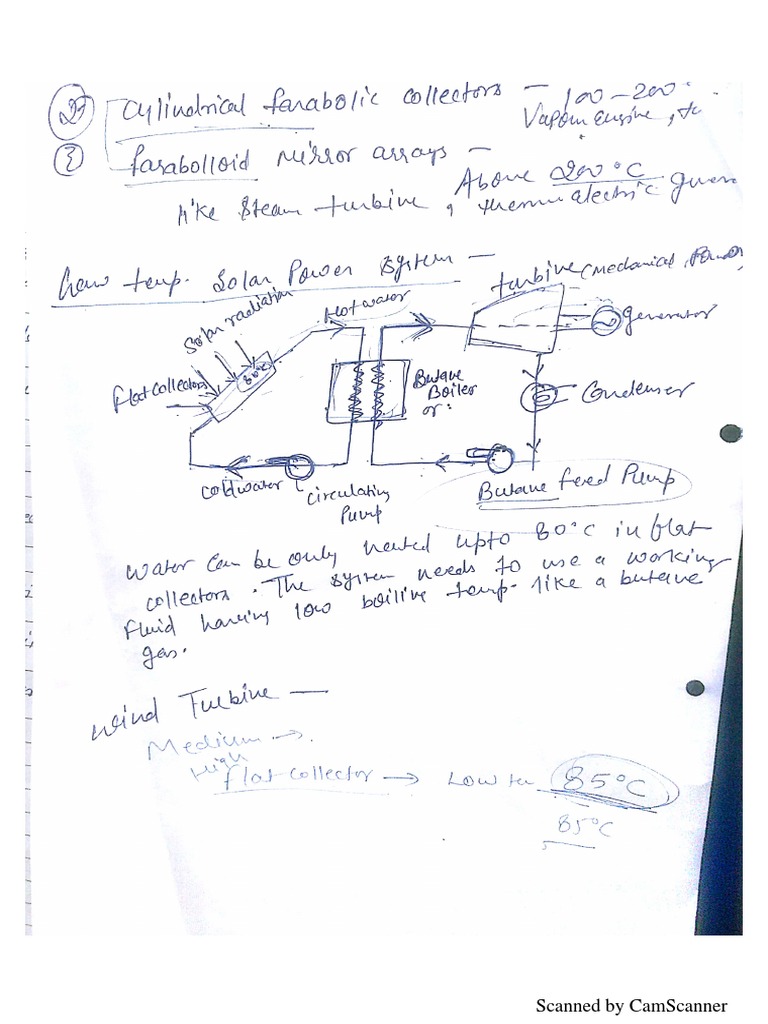 2) Cylindrical Parabolic collectors — 100-200°
Vapour engine,
3 Parabolloid Mirror arrays — Above 200°C
like Steam turbine, thermo electric
Low temp. Solar Power System —
turbine (Mechanical Power)
Solar radiation
Hot water
generator
Flat collectors
80°C
Butane
Boiler
or:
Condenser
Cold water
Circulating
Pump
Butane feed Pump
Water can be only heated upto 80°C in flat
collectors. The System needs to use a working
fluid having low boiling temp. like a butane
gas.
Wind Turbine —
Medium →.
High
flat collector → Low te 85°C
85°C
Scanned by CamScanner